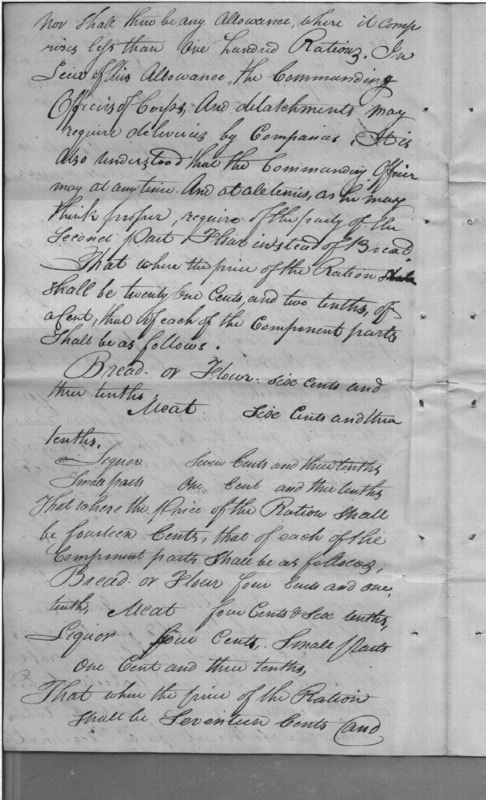 nor shall there be any Allowance, where it comp
rises less than One hundred Rations. In
Lieu of this Allowance, the Commanding
Officers of Corps, And detatchments may
require deliveries by Companies. It is
also understood that the Commanding Officer
may at any time. And at all times, as he may
think proper, require of the party of the
Second Part Flour instead of Bread
That where the price of the Ration
shall be twenty One Cents, and two tenths, of
a Cent, that of each of the Component parts
Shall be as follows.
Bread. or Flour. Six cents and
three tenths,
Meat. Six Cents and three
tenths.
Liquor Seven Cents and three tenths
Small parts One Cent and three tenths
That where the Price of the Ration Shall
be fourteen Cents, that of each of the
Component parts Shall be as follows,
Bread. or Flour four Cents and one
tenth, Meat four Cents & Six tenths,
Liquor four Cents, Small Parts
One Cent and three tenths,
That when the price of the Ration
Shall be Seventeen Cents (and